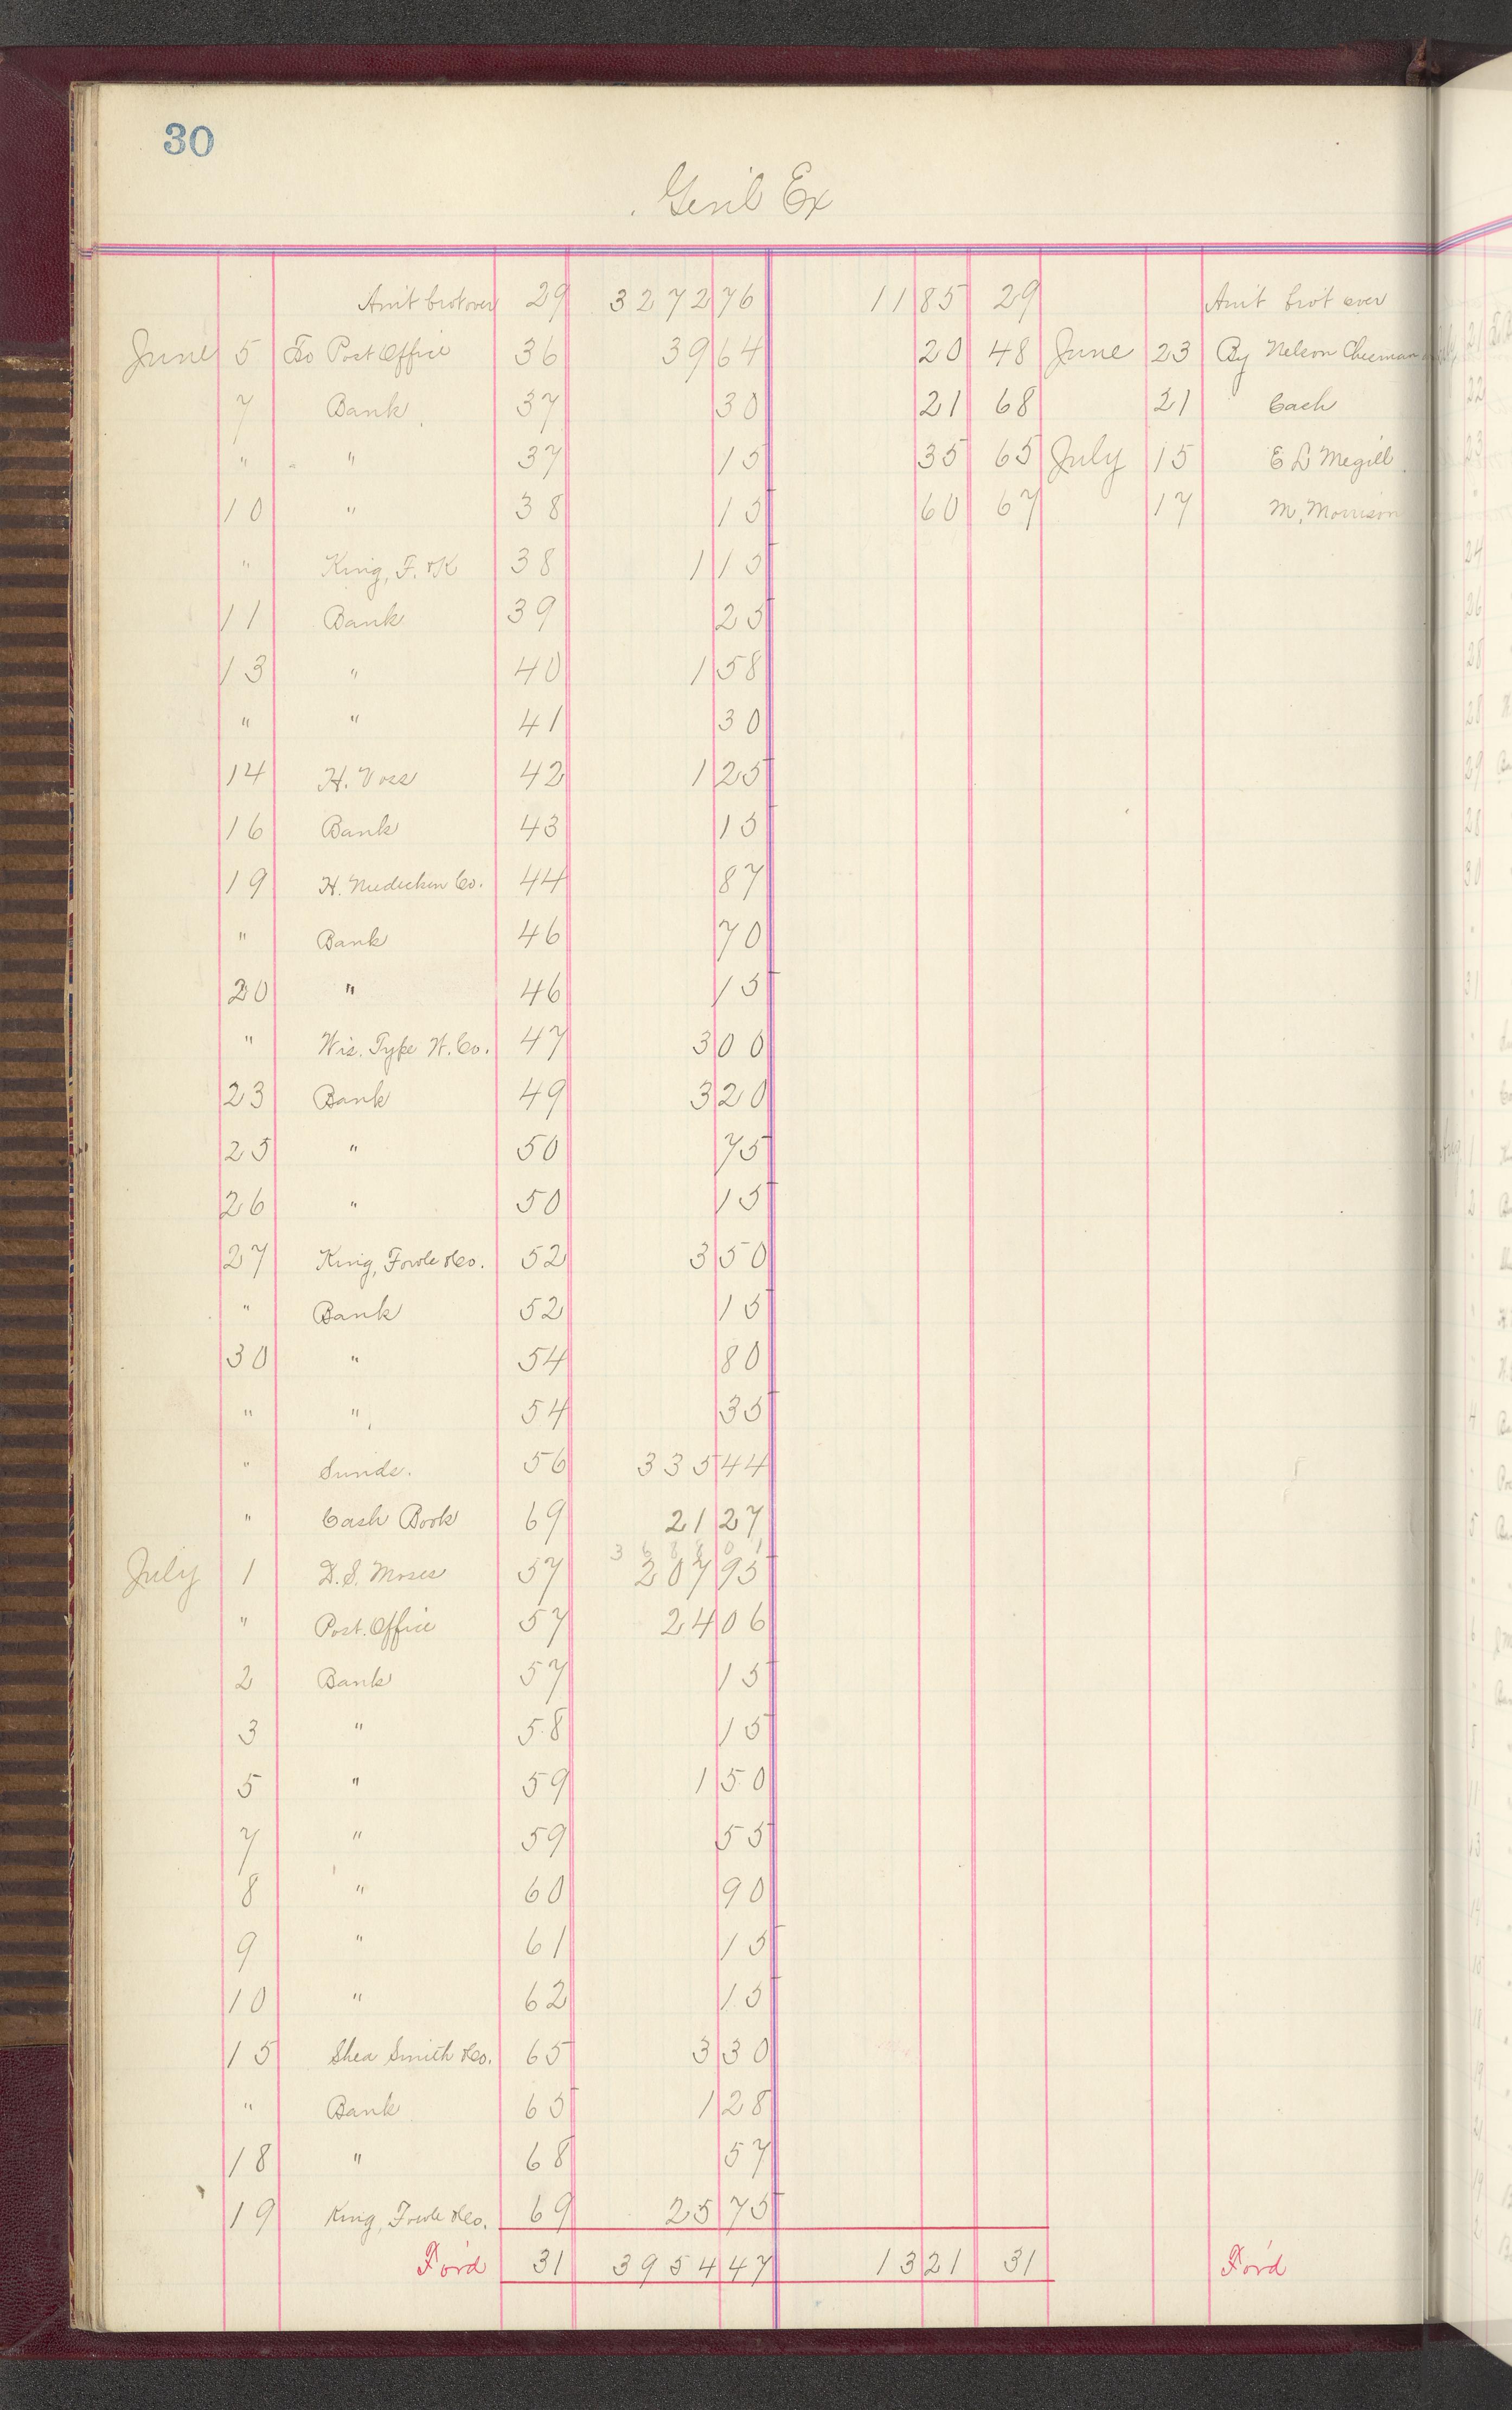 30
Gen'l Ex
Am't brot over 29 3272 76 11 85 29 Am't bro't over
June 5 To Post Office 36 39 64 20 48 June 23 By Nelson Chesman
7 Bank 37 30 21 68 21 Cash
" " 37 15 35 65 July 15 E L Megill
10 " 38 15 60 67 17 M. Morrison
" King, F. & K 38 1 15
11 Bank 39 25
13 " 40 1 58
" " 41 30
14 H. Voss 42 1 25
16 Bank 43 15
19 H. Niedecken Co. 44 87
" Bank 46 70
20 " 46 15
" Wis. Type W. Co. 47 3 00
23 Bank 49 3 20
25 " 50 75
26 " 50 15
27 King, Fowle & Co. 52 3 50
" Bank 52 15
30 " 54 80
" " 54 35
" Sunds. 56 335 44
" Cash Book 69 21 27
3 6 8 8 0 1
July 1 D. S. Moses 57 207 95
" Post. Office 57 24 06
2 Bank 57 15
3 " 58 15
5 " 59 1 50
7 " 59 55
8 " 60 90
9 " 61 15
10 " 62 15
15 Shea Smith & Co. 65 3 30
" Bank 65 1 28
18 " 68 57
19 King, Fowle & Co. 69 25 75
For'd 31 3954 47 13 21 31 For'd